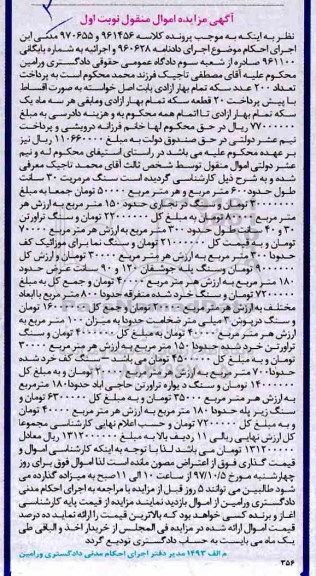 آگهی مزایده اموال منقول نوبت اول
نظر به اینکه به موجب پرونده کلاسه ۹۶۱۴۵۶ و ۹۷۰۶۵۵ مدنی این
اجرای احکام موضوع اجرای دادنامه ۹۶۰۶۲۸ و اجرائیه به شماره بایگانی
۹۶۱۱۰۰ صادره از شعبه سوم دادگاه عمومی حقوقی دادگستری ورامین
محکوم علیه آقای مصطفی تاجیک فرزند محمد محکوم است به پرداخت
تعداد ۲۰۰ عدد سکه تمام بهار آزادی بابت اصل خواسته به صورت اقساط
با پیش پرداخت ۲۰ قطعه سکه تمام بهار آزادی ومابقی هر سه ماه یک
سکه تمام بهار آزادی تا اتمام همه محکوم به و هزینه دادرسی به مبلغ
۷۷۰۰۰۰۰۰ ریال در حق محکوم لها خانم فرزانه درویشی و پرداخت
نیم عشر دولتی در حق صندوق دولت به مبلغ ۱۱۰۶۶۰۰۰۰ ریال نیز
بر عهده محکوم علیه می باشد در راستای استیفای محکوم له و نیم
عشر دولتی اموال منقول توسط شخص ثالث آقای محمد تاجیک معرفی
شده و به شرح ذیل کارشناسی گردیده است سنگ مرمریت ۳۰ سانت
طول حدود ۶۰۰ متر مربع و هر متر مربع ۵۰۰۰۰ تومان جمعا به مبلغ
۳۰۰۰۰۰۰۰ تومان و سنگ در نجاری حدود ۱۵۰ متر مربع به ارزش هر
متر مربع ۸۰۰۰۰ تومان به مبلغ کل ۲۲۰۰۰۰۰۰ تومان و سنگ تراورتن
۳۰ و ۴۰ سانت طول حدود ۳۰۰ متر مربع به ارزش هر متر مربع ۷۰۰۰۰
تومان و به قیمت کل ۲۱۰۰۰۰۰۰ تومان و سنگ نما برای موزائیک کف
حدود ۲۰۰ متر مربع به ارزش هر متر مربع ۳۰۰۰۰ تومان و ارزش کل
۶۰۰۰۰۰۰ تومان وسنگ پله جوشقان ۱۲۰ و ۹۰ سانت عرض حدود
۱۸۰ متر مربع به ارزش هر متر مربع ۴۰۰۰۰ تومان و جمع کل به مبلغ
۷۲۰۰۰۰۰ تومان و سنگ خرد شده متفرقه حدودا ۸۰ متر مربع با ابعاد
مختلف به ارزش هر متر مربع ۲۰۰۰۰ تومان و جمع کل ۱۶۰۰۰۰۰ تومان
و سنگ درپوش ۳ میلی متر ضخامت حدودا به میزان ۱۰۰ متر مربع به
ارزش هر متر مربع ۴۰۰۰۰ تومان به مبلغ کل ۴۰۰۰۰۰۰ تومان و سنگ
تراورتن خرد شده حدودا ۱۵۰ متر مربع به ارزش هر متر مربع ۳۰۰۰۰
تومان و به مبلغ کل ۴۵۰۰۰۰۰ تومان می باشد – سنگ کف خرد شده
حدودا ۷۰۰ متر مربع به ارزش هر متر مربع ۲۰۰۰۰ تومان و به مبلغ کل
۱۴۰۰۰۰۰۰ تومان و سنگ دیواره تراورتن حاجی آباد حدودا ۱۸۰ مترمربع
به ارزش هر متر مربع ۳۵۰۰۰ تومان و به مبلغ کل ۶۳۰۰۰۰۰ تومان و
سنگ زیر پله حدودا ۱۸۰ متر مربع به ارزش هر متر مربع ۴۰۰۰۰ تومان
و به مبلغ کل ۷۲۰۰۰۰۰ تومان و حسب اعلام نهایی کارشناسی مجموعا
کل ارزش نهایی ریالی ۱۱ ردیف بالا به مبلغ ۱۳۱۲۰۰۰۰۰۰ ریال معادل
۱۳۱۲۰۰۰۰۰ تومان می باشد لذا با توجه به اینکه کارشناسی اموال و
قیمت گذاری فوق از اعتراض مصون مانده است لذا اموال فوق برای روز
چهارشنبه مورخ ۹۷/۱۰/۵ از ساعت ۱۰ الی ۱۱ صبح به میزاده گذارده می
شود طالبین می توانند ۵ روز قبل از مزایده با مراجعه به اجرای احکام مدنی
دادگستری ورامین از اموال بازدید نمایند مزایده از قیمت پایه کارشناسی
آغاز و برنده کسی خواهد بود که بالاترین قیمت را ارائه نماید ده درصد
قیمت اموال ارائه شده در مزایده فی المجلس از خریدار اخذ و الباقی طی
یک ماه می بایست به حساب دادگستری تودیع گردد
م الف ۱۴۹۳ مدیر دفتر اجرای احکام مدنی دادگستری ورامین
۳۵۶